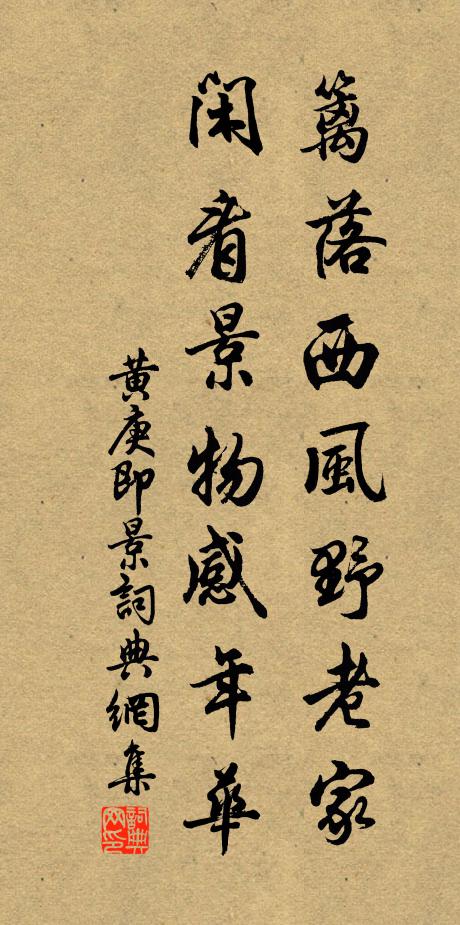 籬落西風野老家
閑看景物感年華
黃庚即景詞典網集
詞典网印